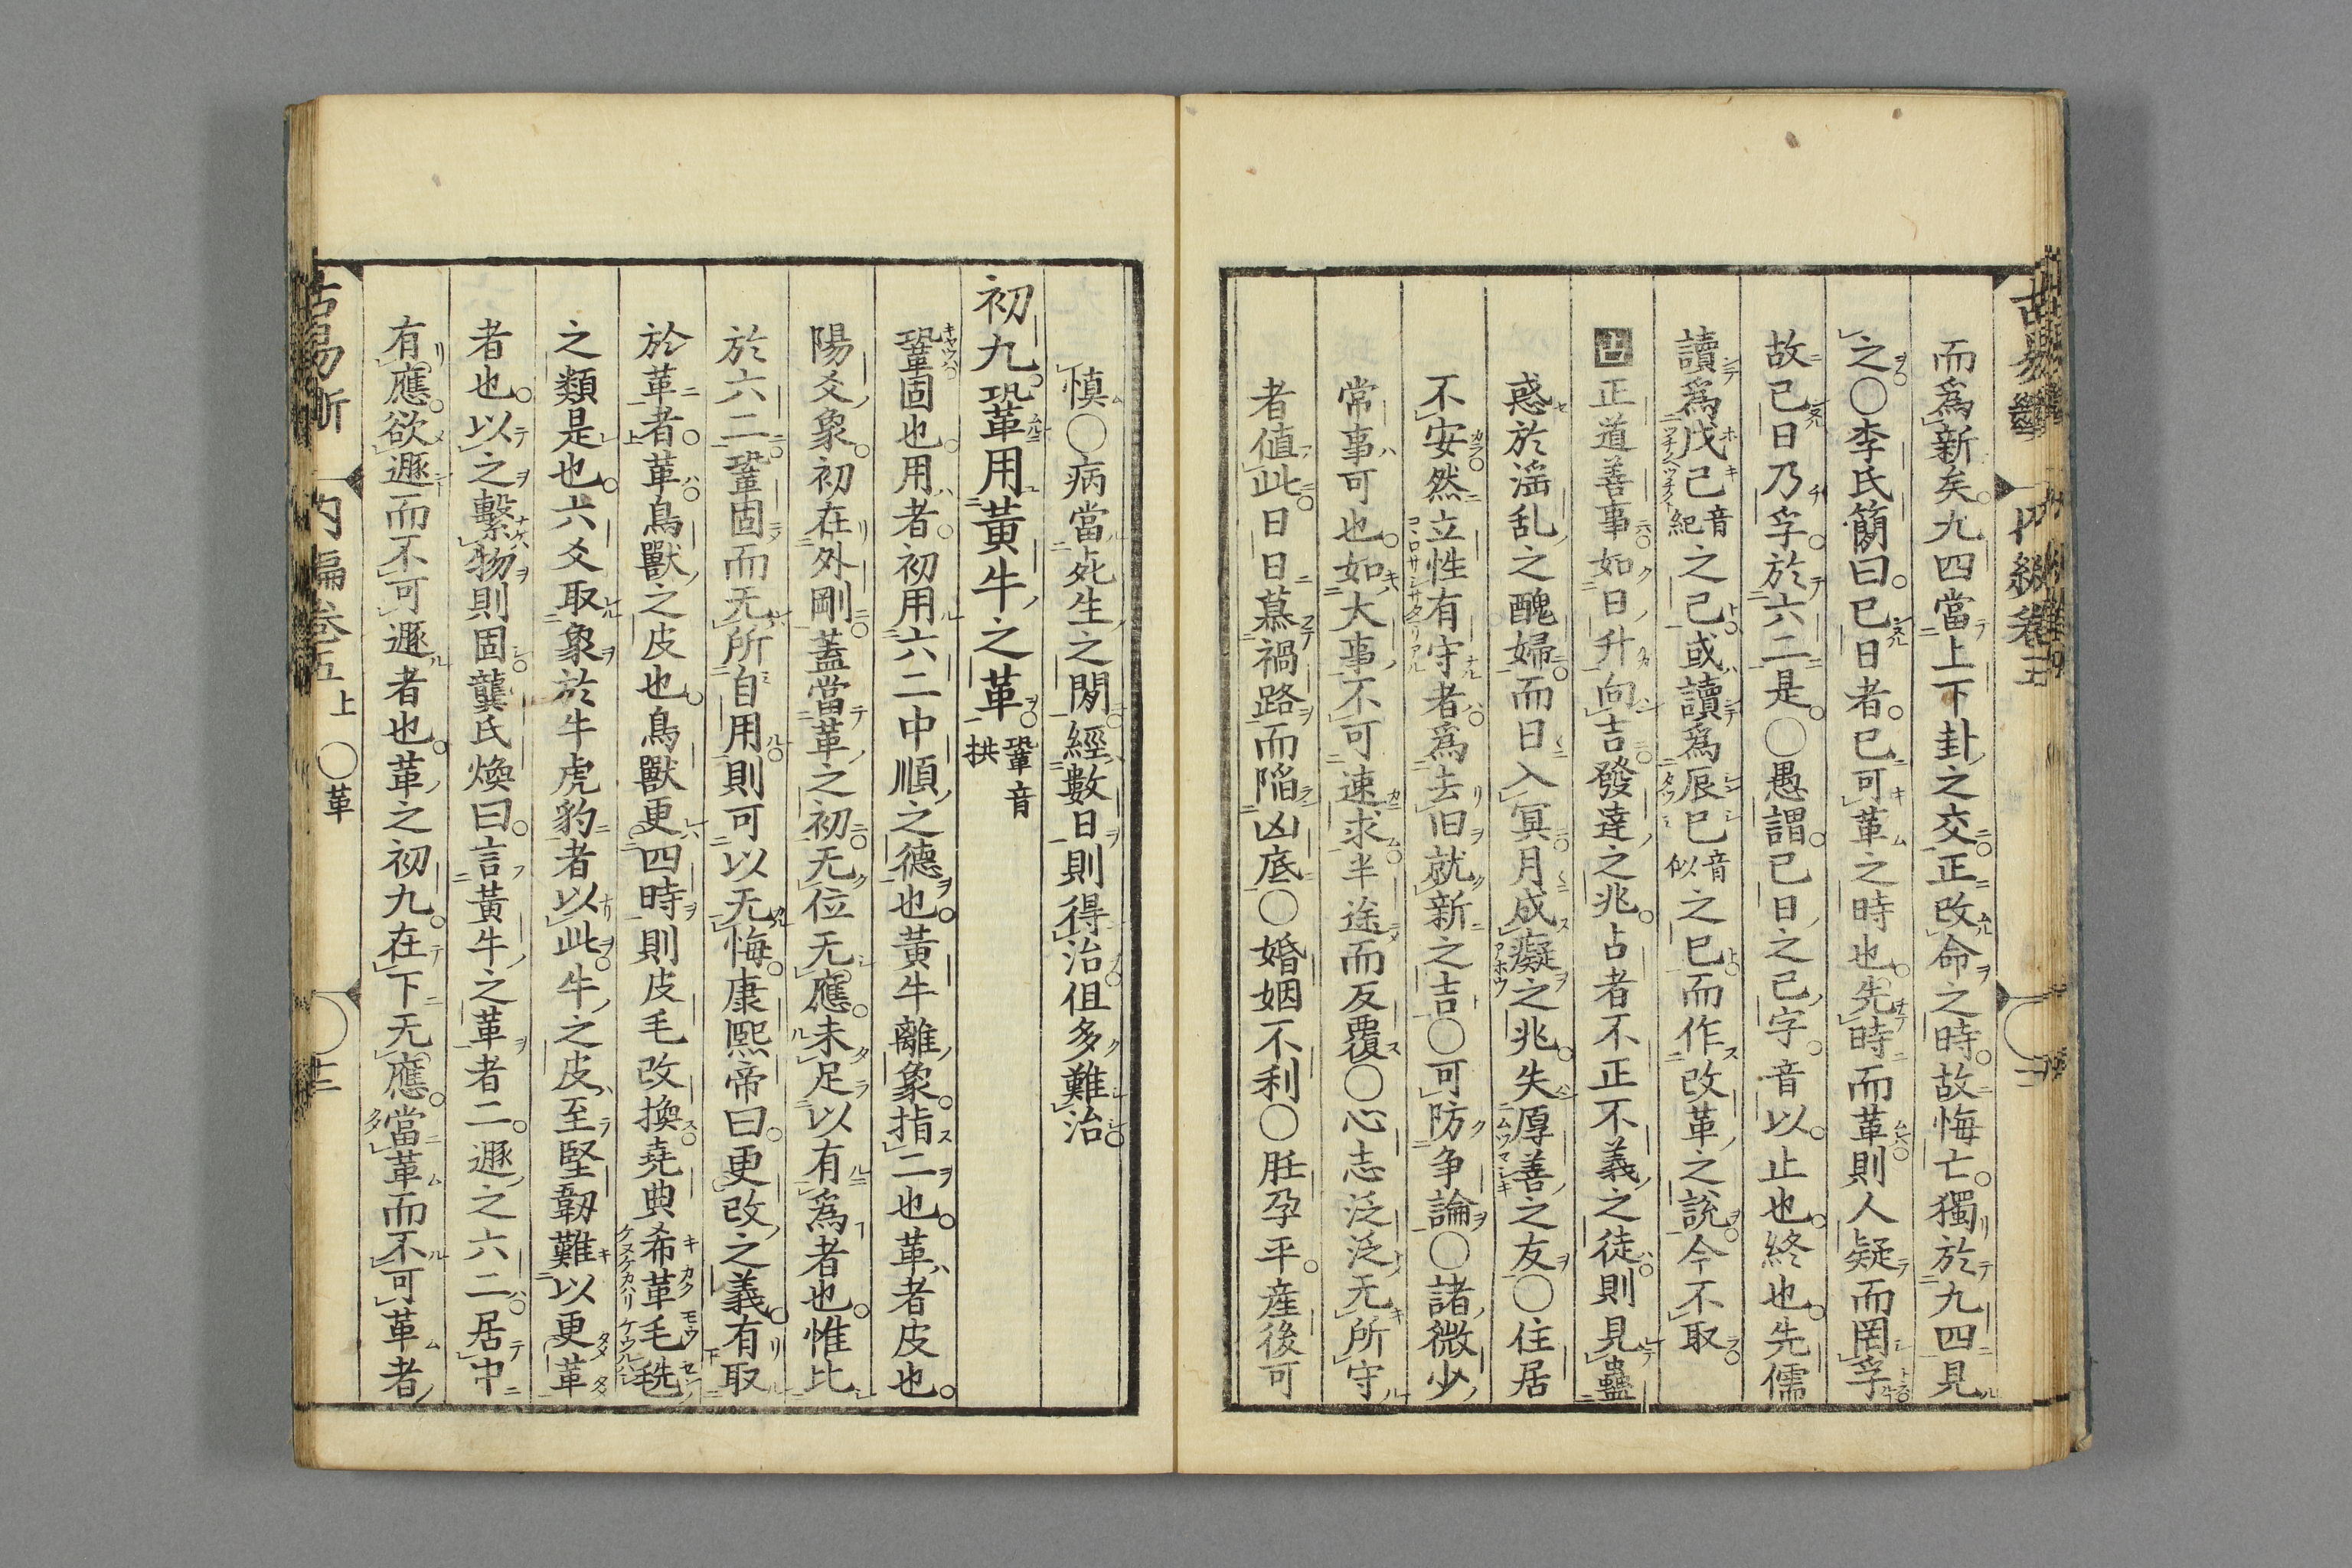 而爲新矣九四當上下卦之交正改命之時故悔亡獨於九四見
之○李氏簡曰已日者已可革之時也先時而革則人疑而罔孚
故已日乃孚於六二是○愚謂已日之已字音以止也終也先儒
讀爲戊己音紀之己或讀爲辰巳音似之巳而作改革之說今不取
占正道善事如日升向吉發達之兆占者不正不義之徒則見蠱
惑於滛乱之醜婦而日入冥月成癡之兆失厚善之友○住居
不安然立性有守者爲去旧就新之吉○可防争論○諸微少
常事可也如大事不可速求半途而反覆○心志泛泛无所守
者値此日日慕禍路而陥凶底○婚姻不利○胚孕平産後可
慎○病當死生之間經數日則得治但多難治
初九鞏用黃牛之革鞏音拱
鞏固也用者初用六二中順之德也黃牛離象指二也革者皮也
陽爻象初在外剛蓋當革之初无位无應未足以有爲者也惟比
於六二鞏固而无所自用則可以无悔康熙帝曰更改之義有取
於革者革鳥獸之皮也鳥獸更四時則皮毛改換堯典希革毛毨
之類是也六爻取象於牛虎豹者以此牛之皮至堅韌難以更革
者也以之繫物則固龔氏煥曰言黃牛之革者二遯之六二居中
有應欲遯而不可遯者也革之初九在下无應當革而不可革者
古易斷 內編卷五上 ○革